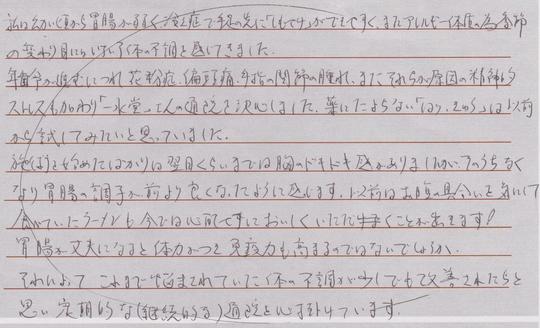 私は幼い頃から胃腸が弱く冷え症で手足の先に「しもやけ」ができやすく、またアレルギー体質の為季節
の変わり目にはいろいろ体の不調を感じてきました。
年齢が進むにつれ花粉症、偏頭痛、手指の関節の腫れ、またそれらが原因の精神的
ストレスも加わり「一水堂」さんの通院を決心しました。薬にたよらない「はり、きゅう」は以前
から試してみたいと思っていました。
施術を始めたばかりは翌日くらいまでは胸のドキドキ感がありましたが、そのうちなく
なり胃腸の調子が前より良くなったように感じます。以前はお腹の具合いを気にして
食べていたラーメンも今では心配せずにおいしくいただくことが出来ます!
胃腸が丈夫になると体力がつき免疫力も高まるのではないでしょうか。
それによって これまで悩まされていた体の不調が少しでも改善されたらと
思い定期的な(継続的な)通院を心掛けています。